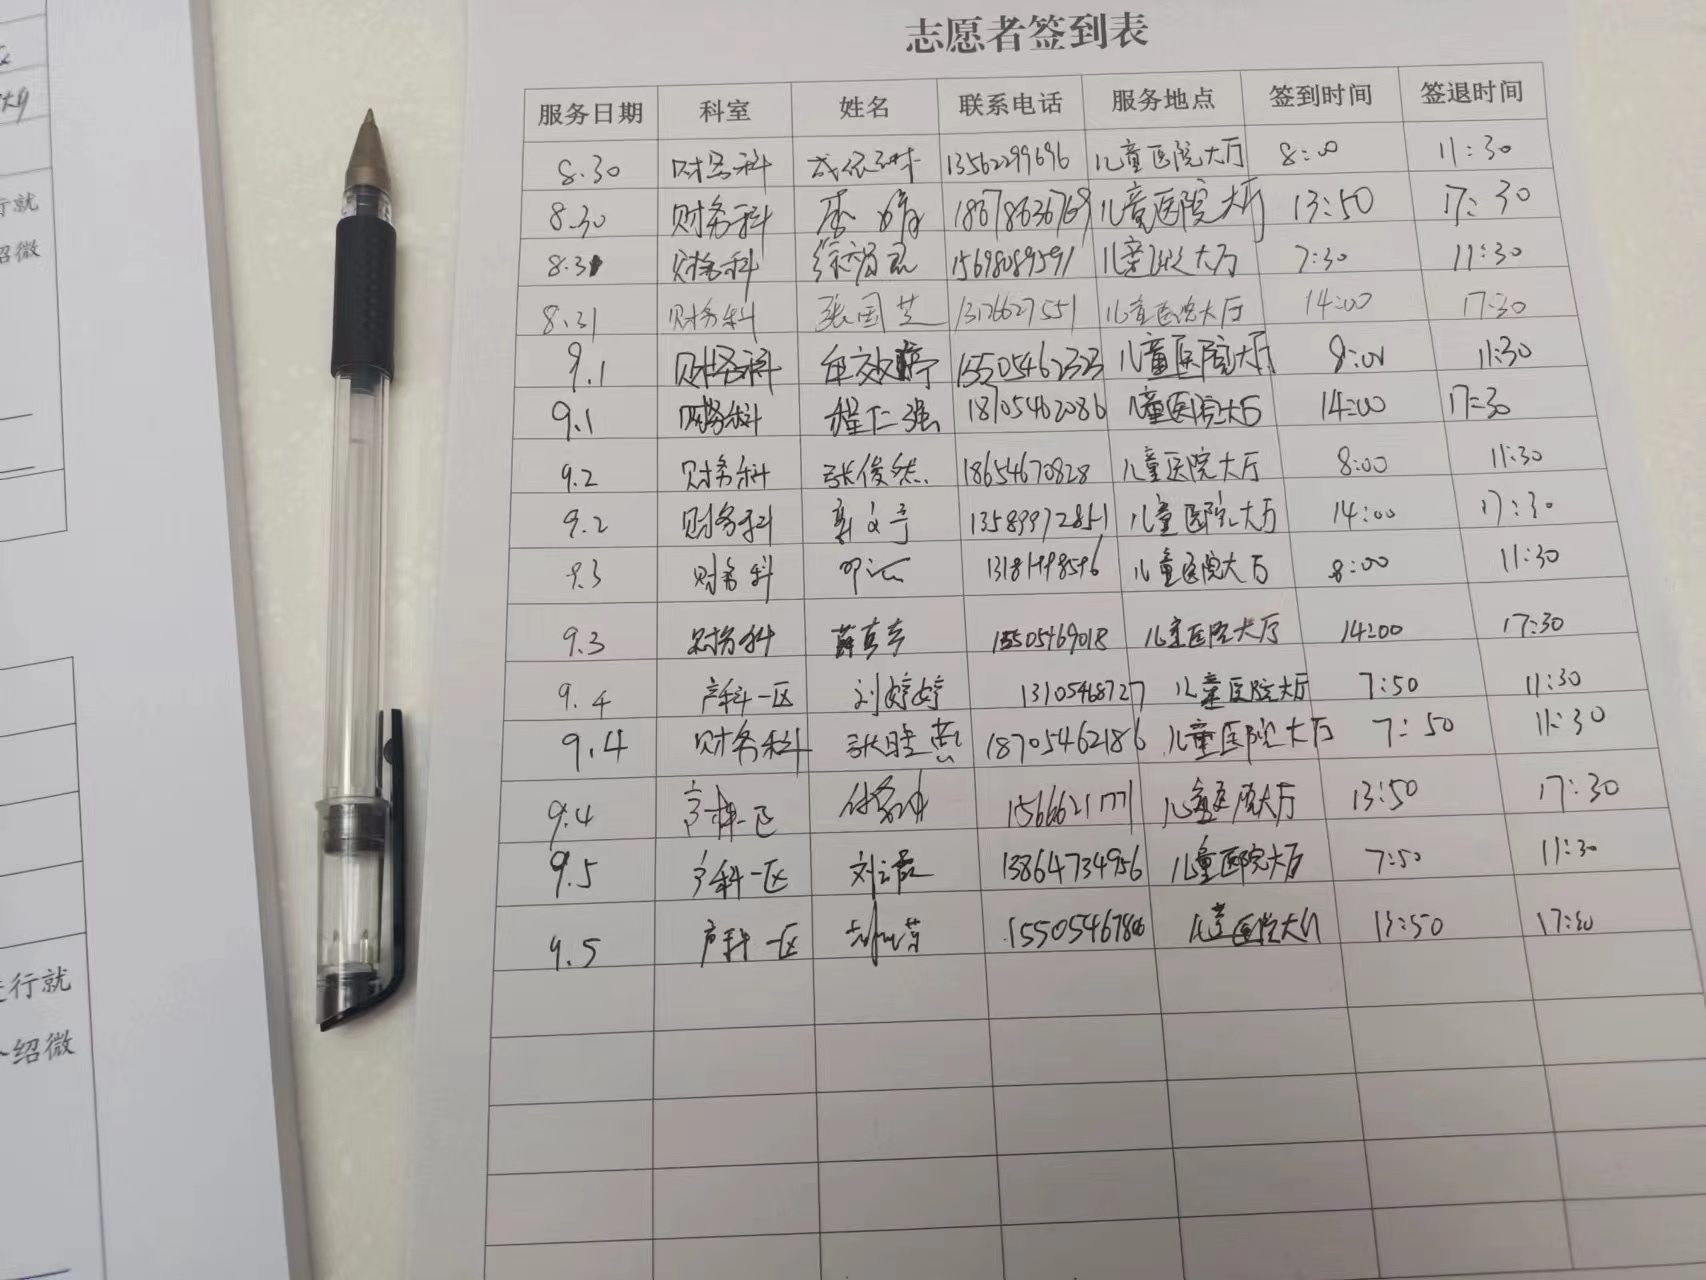 志愿者签到表
服务日期 科室 姓名 联系电话 服务地点 签到时间 签退时间
8.30 财务科 13562299696 儿童医院大厅 8:00 11:30
8.30 财务科 18678636769 儿童医院大厅 13:50 17:30
8.31 财务科 15698089591 儿童医院大厅 7:30 11:30
8.31 财务科 张国芝 儿童医院大厅 14:00 17:30
9.1 财务科 15505462323 儿童医院大厅 8:00 11:30
9.1 财务科 程仁强 18705462086 儿童医院大厅 14:00 17:30
9.2 财务科 张俊然 18654670828 儿童医院大厅 8:00 11:30
9.2 财务科 13589972851 儿童医院大厅 14:00 17:30
9.3 财务科 儿童医院大厅 8:00 11:30
9.3 财务科 15505469018 儿童医院大厅 14:00 17:30
9.4 产科一区 刘婷婷 13105468727 儿童医院大厅 7:50 11:30
9.4 财务科 18705462186 儿童医院大厅 7:50 11:30
9.4 产科一区 儿童医院大厅 13:50 17:30
9.5 产科一区 13864734956 儿童医院大厅 7:50 11:30
9.5 产科一区 儿童医院大厅 13:50 17:30
行就
绍微
行就
绍微